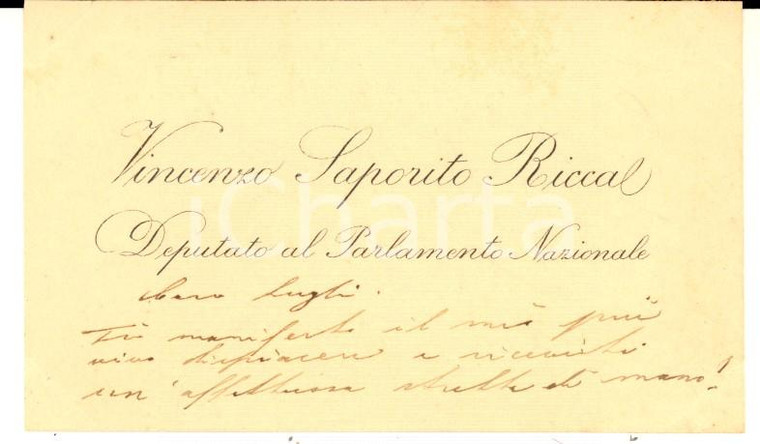 Vincenzo Saporito Riccal
Deputato al Parlamento Nazionale
iCharta
Caro Lugli.
Ti manifesto il mio più
vivo dispiacere e riceviti
un'affettuosa stretta di mano!